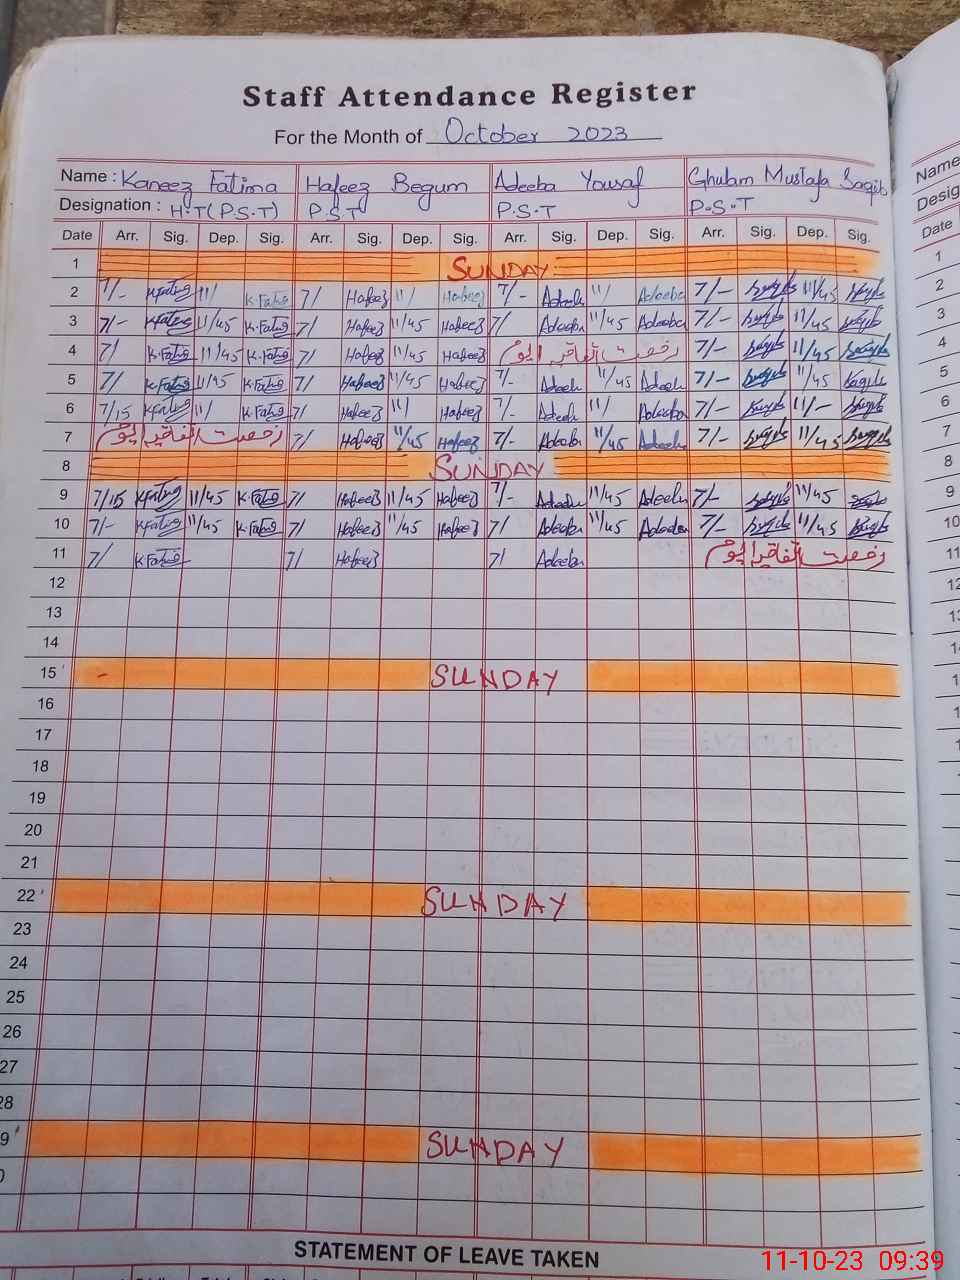 Staff Attendance Register
For the Month of October 2023
Name : Kaneez Fatima Hafeez Begum Adeeba Yousaf Ghulam Mustafa Saqib Name
Designation : H.T(P.S.T) P.S.T P.S.T P.S.T Desig
Date Arr. Sig. Dep. Sig. Arr. Sig. Dep. Sig. Arr. Sig. Dep. Sig. Arr. Sig. Dep. Sig. Date
1 SUNDAY 1
2 7/- K.Fatima 11/ K.Fatima 7/ Hafeez 11/ Hafeez 7/- Adeeba 11/ Adeeba 7/- 11/45 2
3 7/- K.Fatima 11/45 K.Fatima 7/ Hafeez 11/45 Hafeez 7/ Adeeba 11/45 Adeeba 7/- 11/45 3
4 7/ K.Fatima 11/45 K.Fatima 7/ Hafeez 11/45 Hafeez رخصت اتفاقیہ الیوم 7/- 11/45 4
5 7/ K.Fatima 11/45 K.Fatima 7/ Hafeez 11/45 Hafeez 7/- Adeeba 11/45 Adeeba 7/- 11/45 5
6 7/15 K.Fatima 11/ K.Fatima 7/ Hafeez 11/ Hafeez 7/- Adeeba 11/ Adeeba 7/- 11/- 6
7 رخصت اتفاقیہ الیوم 7/ Hafeez 11/45 Hafeez 7/- Adeeba 11/45 Adeeba 7/- 11/45 7
8 SUNDAY 8
9 7/15 K.Fatima 11/45 K.Fatima 7/ Hafeez 11/45 Hafeez 7/- Adeeba 11/45 Adeeba 7/- 11/45 9
10 7/- K.Fatima 11/45 K.Fatima 7/ Hafeez 11/45 Hafeez 7/ Adeeba 11/45 Adeeba 7/- 11/45 10
11 7/ K.Fatima 7/ Hafeez 7/ Adeeba رخصت اتفاقیہ الیوم 11
12 12
13
14
15 SUNDAY
16
17
18
19
20
21
22 SUNDAY
23
24
25
26
27
28
9 SUNDAY
0
STATEMENT OF LEAVE TAKEN
11-10-23 09:39